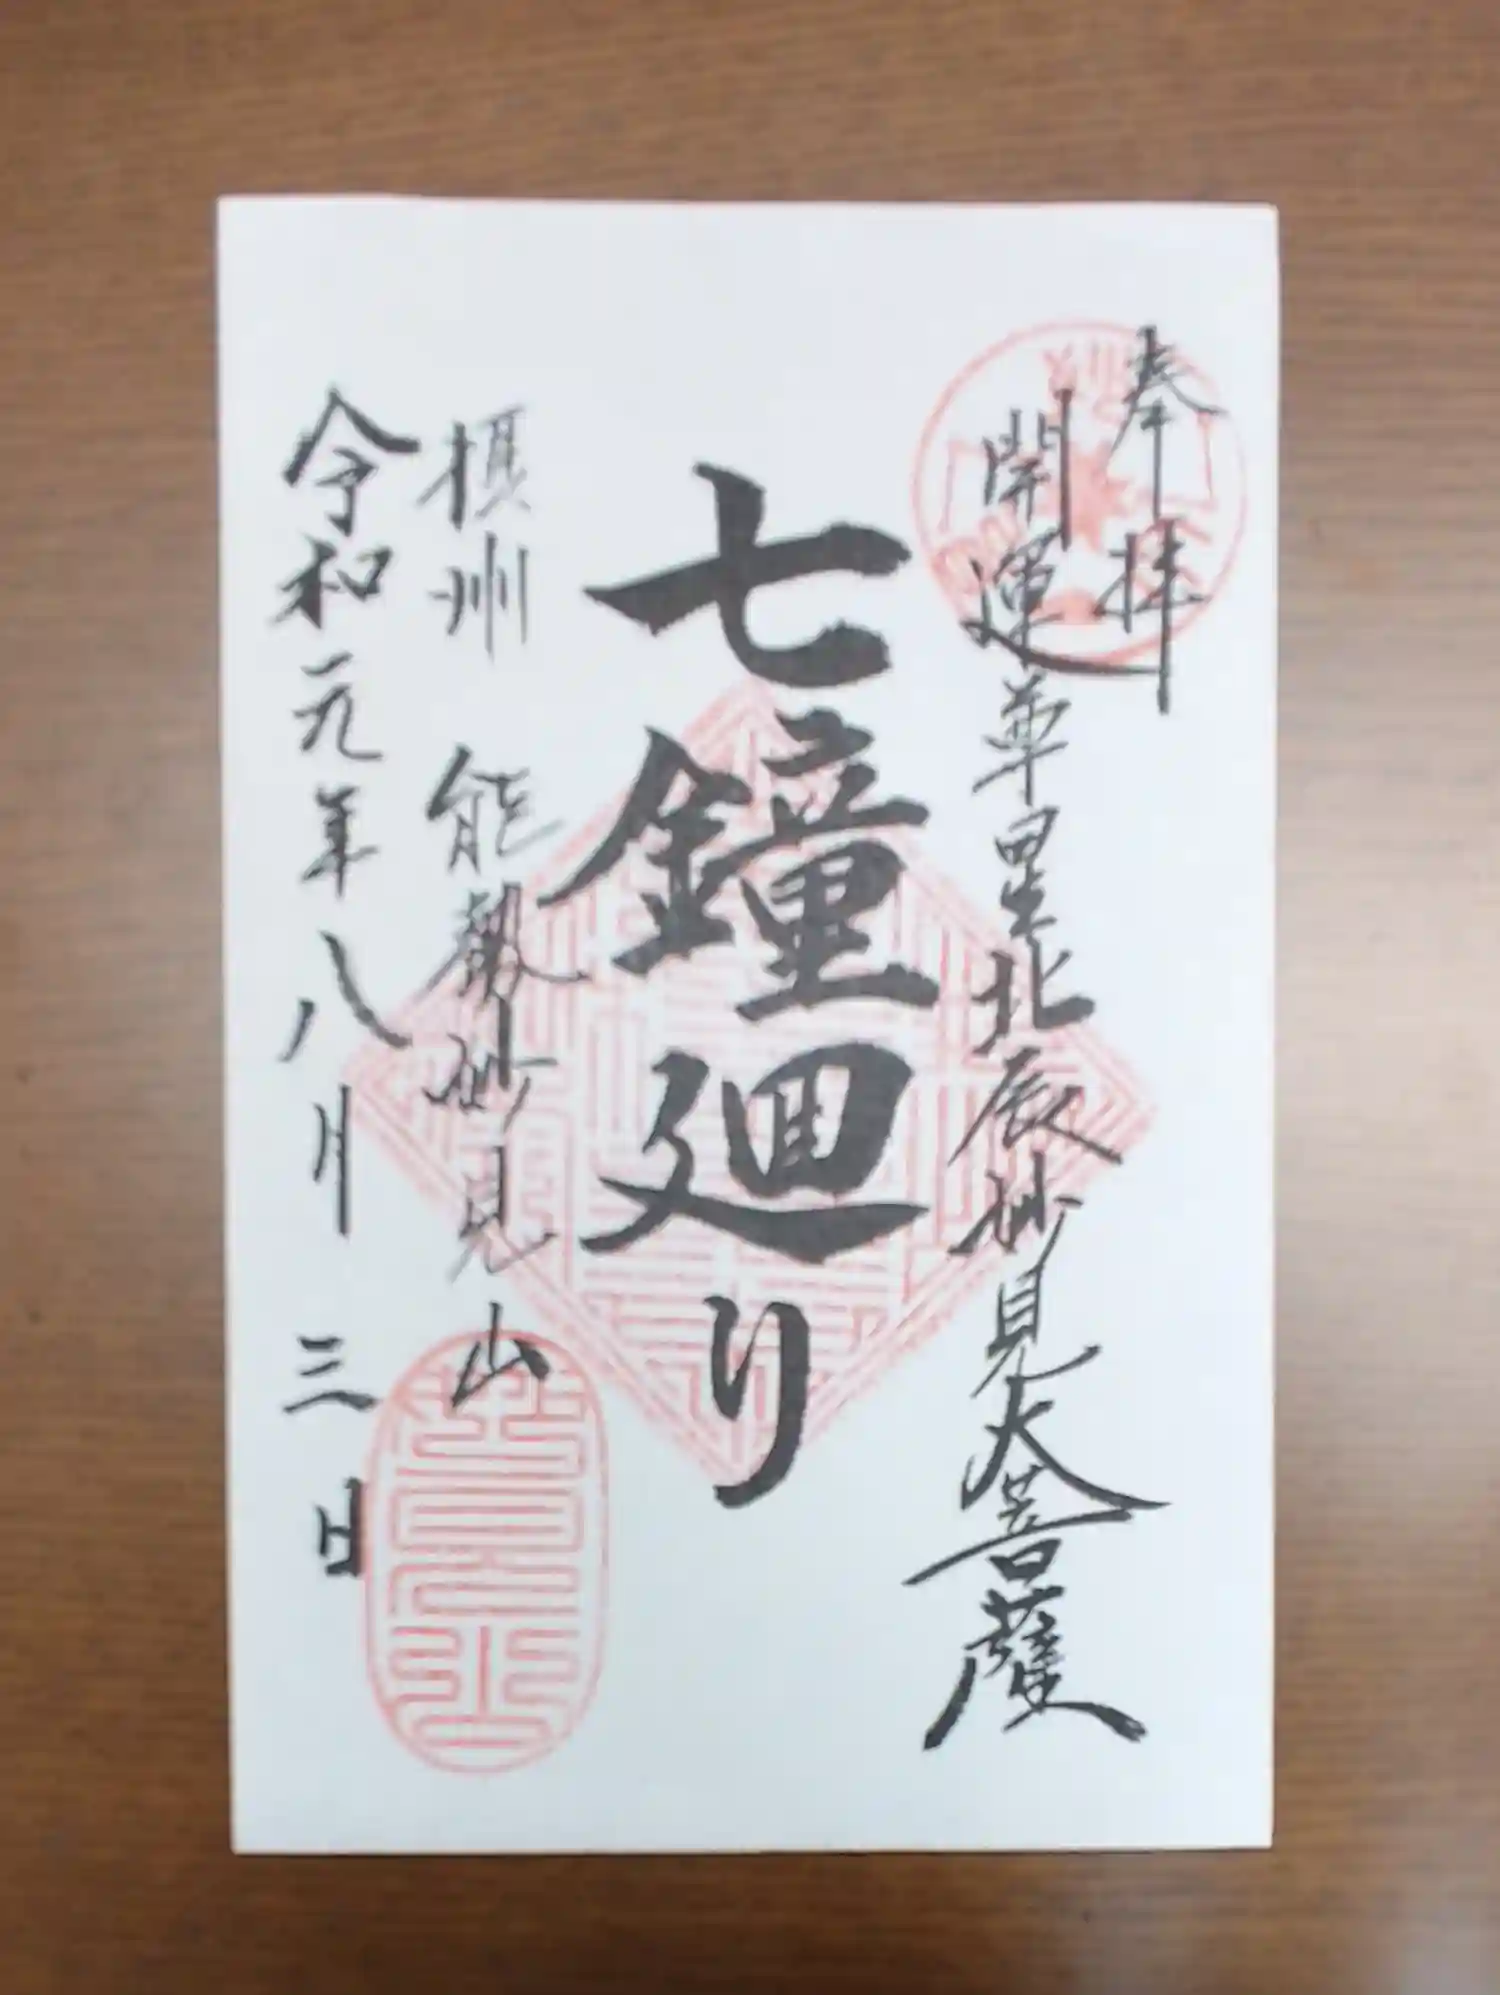 奉拝
開運華星北辰妙見大菩薩
七鐘廻り
摂州 能勢妙見山
令和元年八月三日